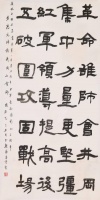 革命雄師會井岡
集中力量更堅彊
紅軍領導提高後
五破圍攻固戰場